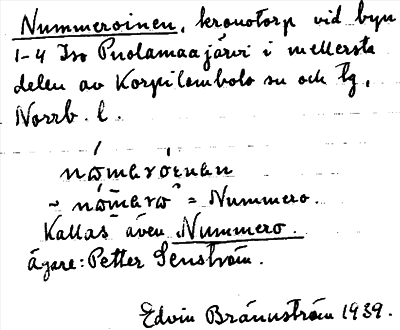 Nummeroinen, kronotorp vid byn
1-4 Iso Puolamaajärvi i mellersta
delen av Korpilombolo sn och tg,
Norrb. l.
Nummero.
Kallas även Nummero.
Ägare: Petter Senström.
Edvin Brännström 1939.